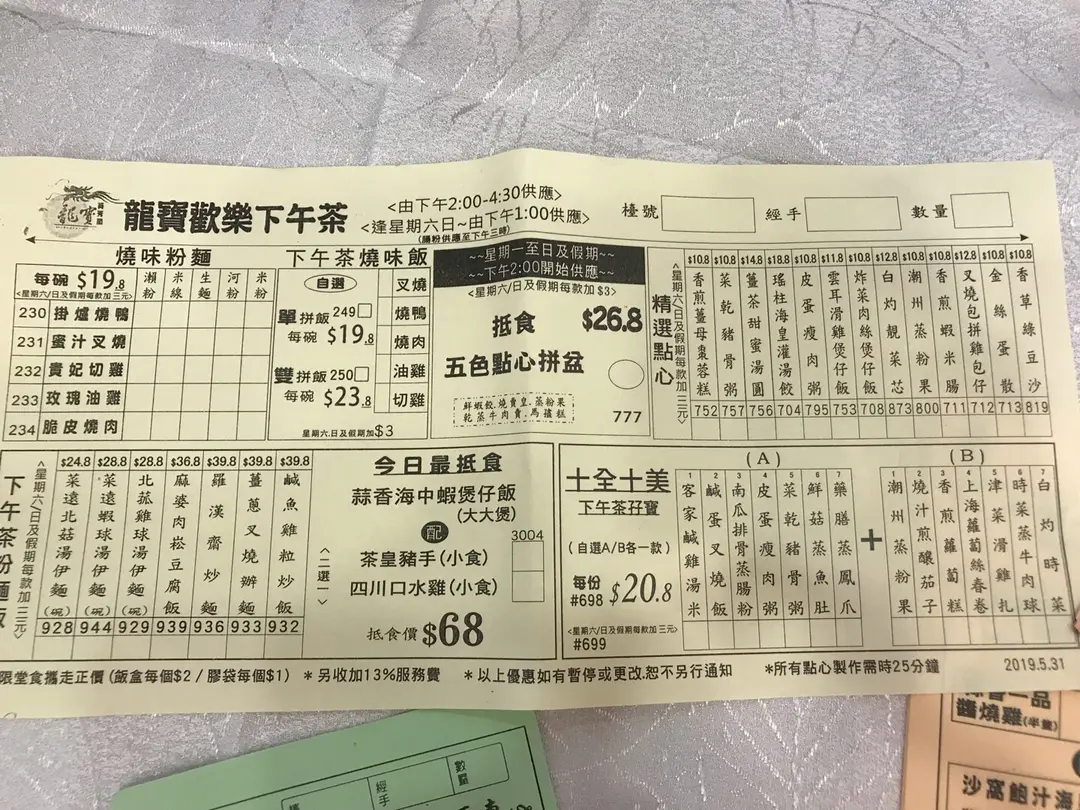 龍寶
龍寶歡樂下午茶
<由下午2:00-4:30供應>
<逢星期六日~由下午1:00供應>
(腸粉供應至下午三時)
檯號
經手
數量
燒味粉麵
每碗 $19.8
<星期六/日及假期每款加三元>
瀨粉
米線
生麵
河粉
米粉
230 掛爐燒鴨
231 蜜汁叉燒
232 貴妃切雞
233 玫瑰油雞
234 脆皮燒肉
下午茶燒味飯
自選
單拼飯 249
每碗 $19.8
雙拼飯 250
每碗 $23.8
叉燒
燒鴨
燒肉
油雞
切雞
星期六.日及假期加$3
~~星期一至日及假期~~
~~下午2:00開始供應~~
<星期六/日及假期每款加$3>
抵食 $26.8
五色點心拼盆
鮮蝦餃.燒賣皇.蒸粉果
乾蒸牛肉賣.馬禮糕
777
精選點心
<星期六/日及假期每款加三元>
$10.8 香煎薑母棗蓉糕 752
$10.8 菜乾豬骨粥 757
$14.8 薑茶甜蜜湯圓 756
$18.8 瑤柱海皇灌湯餃 704
$10.8 皮蛋瘦肉粥 795
$11.8 雲耳滑雞煲仔飯 753
$10.8 炸菜肉絲煲仔飯 708
$12.8 白灼靚菜芯 873
$10.8 潮州蒸粉果 800
$10.8 香煎蝦米腸 711
$12.8 叉燒包拼雞包仔 712
$10.8 金絲蛋散 713
$10.8 香草綠豆沙 819
下午茶粉麵飯
<星期六/日及假期每款加三元>
$24.8 菜遠北菇湯伊麵(碗) 928
$28.8 菜遠蝦球湯伊麵(碗) 944
$28.8 北菇雞球湯伊麵(碗) 929
$36.8 麻婆肉崧豆腐飯 939
$39.8 羅漢齋炒麵 936
$39.8 薑蔥叉燒辦麵 933
$39.8 鹹魚雞粒炒飯 932
今日最抵食
蒜香海中蝦煲仔飯
(大大煲)
配
3004
<二選一>
茶皇豬手(小食)
四川口水雞(小食)
抵食價 $68
十全十美
下午茶孖寶
(自選A/B各一款)
每份 $20.8
#698
<星期六/日及假期每款加三元>
#699
(A)
1 客家鹹雞湯米
2 鹹蛋叉燒飯
3 南瓜排骨蒸腸粉
4 皮蛋瘦肉粥
5 菜乾豬骨粥
6 鮮菇蒸魚肚
7 藥膳蒸鳳爪
+
(B)
1 潮州蒸粉果
2 燒汁煎釀茄子
3 香煎蘿蔔糕
4 上海蘿蔔絲春卷
5 津菜滑雞扎
6 時菜蒸牛肉球
7 白灼時菜
限堂食攜走正價 (飯盒每個$2 / 膠袋每個$1) *另收加13%服務費 *以上優惠如有暫停或更改.恕不另行通知 *所有點心製作需時25分鐘
2019.5.31
經手
數量
一品
醬燒雞(半隻)
沙窩鮑汁海